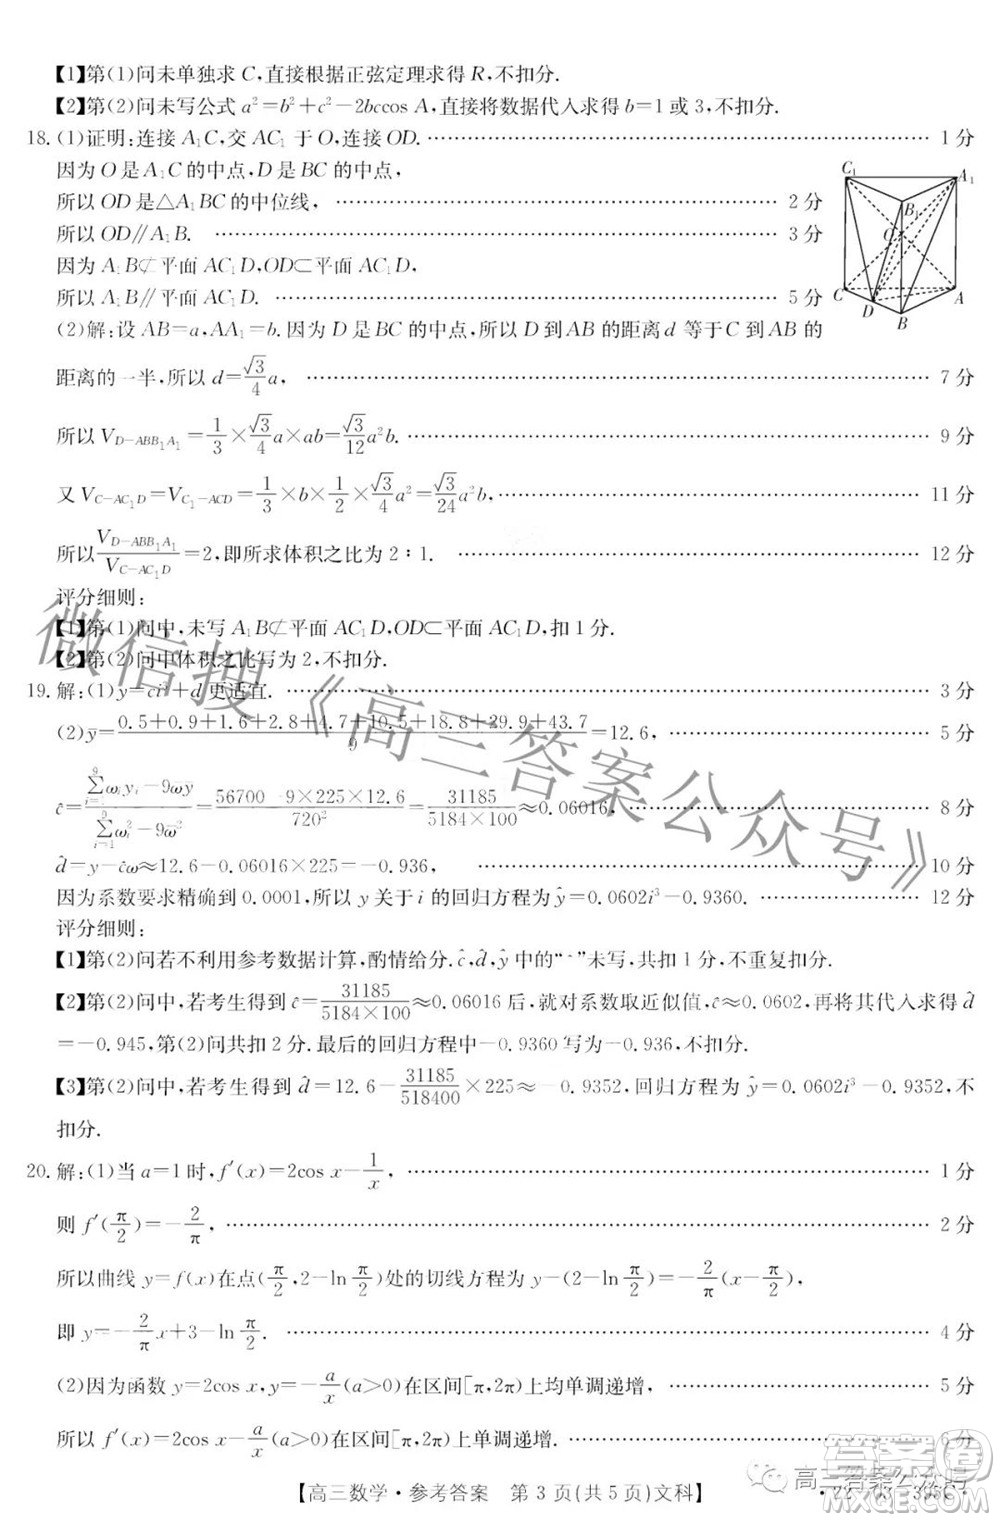 【1】第(1)问未单独求 C,直接根据正弦定理求得 R,不扣分.
【2】第(2)问未写公式 a²=b²+c²−2bccos A,直接将数据代入求得 b=1 或 3,不扣分.
18.(1)证明:连接 A₁C,交 AC₁ 于 O,连接 OD. …… 1 分
因为 O 是 A₁C 的中点,D 是 BC 的中点,
所以 OD 是△A₁BC 的中位线, …… 2 分
所以 OD∥A₁B. …… 3 分
因为 A₁B⊄平面 AC₁D,OD⊂平面 AC₁D,
所以 A₁B∥平面 AC₁D. …… 5 分
C₁ A₁ B₁ O C D B A
(2)解:设 AB=a,AA₁=b.因为 D 是 BC 的中点,所以 D 到 AB 的距离 d 等于 C 到 AB 的
距离的一半,所以 d=√3/4 a, …… 7 分
所以 V_{D−ABB₁A₁}=1/3×√3/4 a×ab=√3/12 a²b. …… 9 分
又 V_{C−AC₁D}=V_{C₁−ACD}=1/3×b×1/2×√3/4 a²=√3/24 a²b, …… 11 分
所以 V_{D−ABB₁A₁}/V_{C−AC₁D}=2,即所求体积之比为 2∶1. …… 12 分
评分细则:
【1】第(1)问中,未写 A₁B⊄平面 AC₁D,OD⊂平面 AC₁D,扣 1 分.
【2】第(2)问中体积之比写为 2,不扣分.
19.解:(1)y=ci³+d 更适宜. …… 3 分
(2)y̅=(0.5+0.9+1.6+2.8+4.7+10.5+18.8+29.9+43.7)/9=12.6, …… 5 分
ĉ=(∑_{i=1}^{9}ωᵢyᵢ−9ω̅y̅)/(∑_{i=1}^{9}ωᵢ²−9ω̅²)=(56700−9×225×12.6)/720²=31185/(5184×100)≈0.06016, …… 8 分
d̂=y̅−ĉω̅≈12.6−0.06016×225=−0.936, …… 10 分
因为系数要求精确到 0.0001,所以 y 关于 i 的回归方程为 ŷ=0.0602i³−0.9360. …… 12 分
评分细则:
【1】第(2)问若不利用参考数据计算,酌情给分.ĉ,d̂,ŷ 中的“ˆ”未写,共扣 1 分,不重复扣分.
【2】第(2)问中,若考生得到 ĉ=31185/(5184×100)≈0.06016 后,就对系数取近似值,ĉ≈0.0602,再将其代入求得 d̂
=−0.945,第(2)问共扣 2 分.最后的回归方程中−0.9360 写为−0.936,不扣分.
【3】第(2)问中,若考生得到 d̂=12.6−31185/518400×225≈−0.9352,回归方程为 ŷ=0.0602i³−0.9352,不
扣分.
20.解:(1)当 a=1 时,f′(x)=2cos x−1/x, …… 1 分
则 f′(π/2)=−2/π, …… 2 分
所以曲线 y=f(x)在点(π/2,2−ln π/2)处的切线方程为 y−(2−ln π/2)=−2/π(x−π/2),
即 y=−2/π x+3−ln π/2. …… 4 分
(2)因为函数 y=2cos x,y=−a/x(a>0)在区间[π,2π)上均单调递增, …… 5 分
所以 f′(x)=2cos x−a/x(a>0)在区间[π,2π)上单调递增. …… 6 分
【高三数学·参考答案 第 3 页(共 5 页)文科】
微信搜《高三答案公众号》
高三答案公众号
答案圈